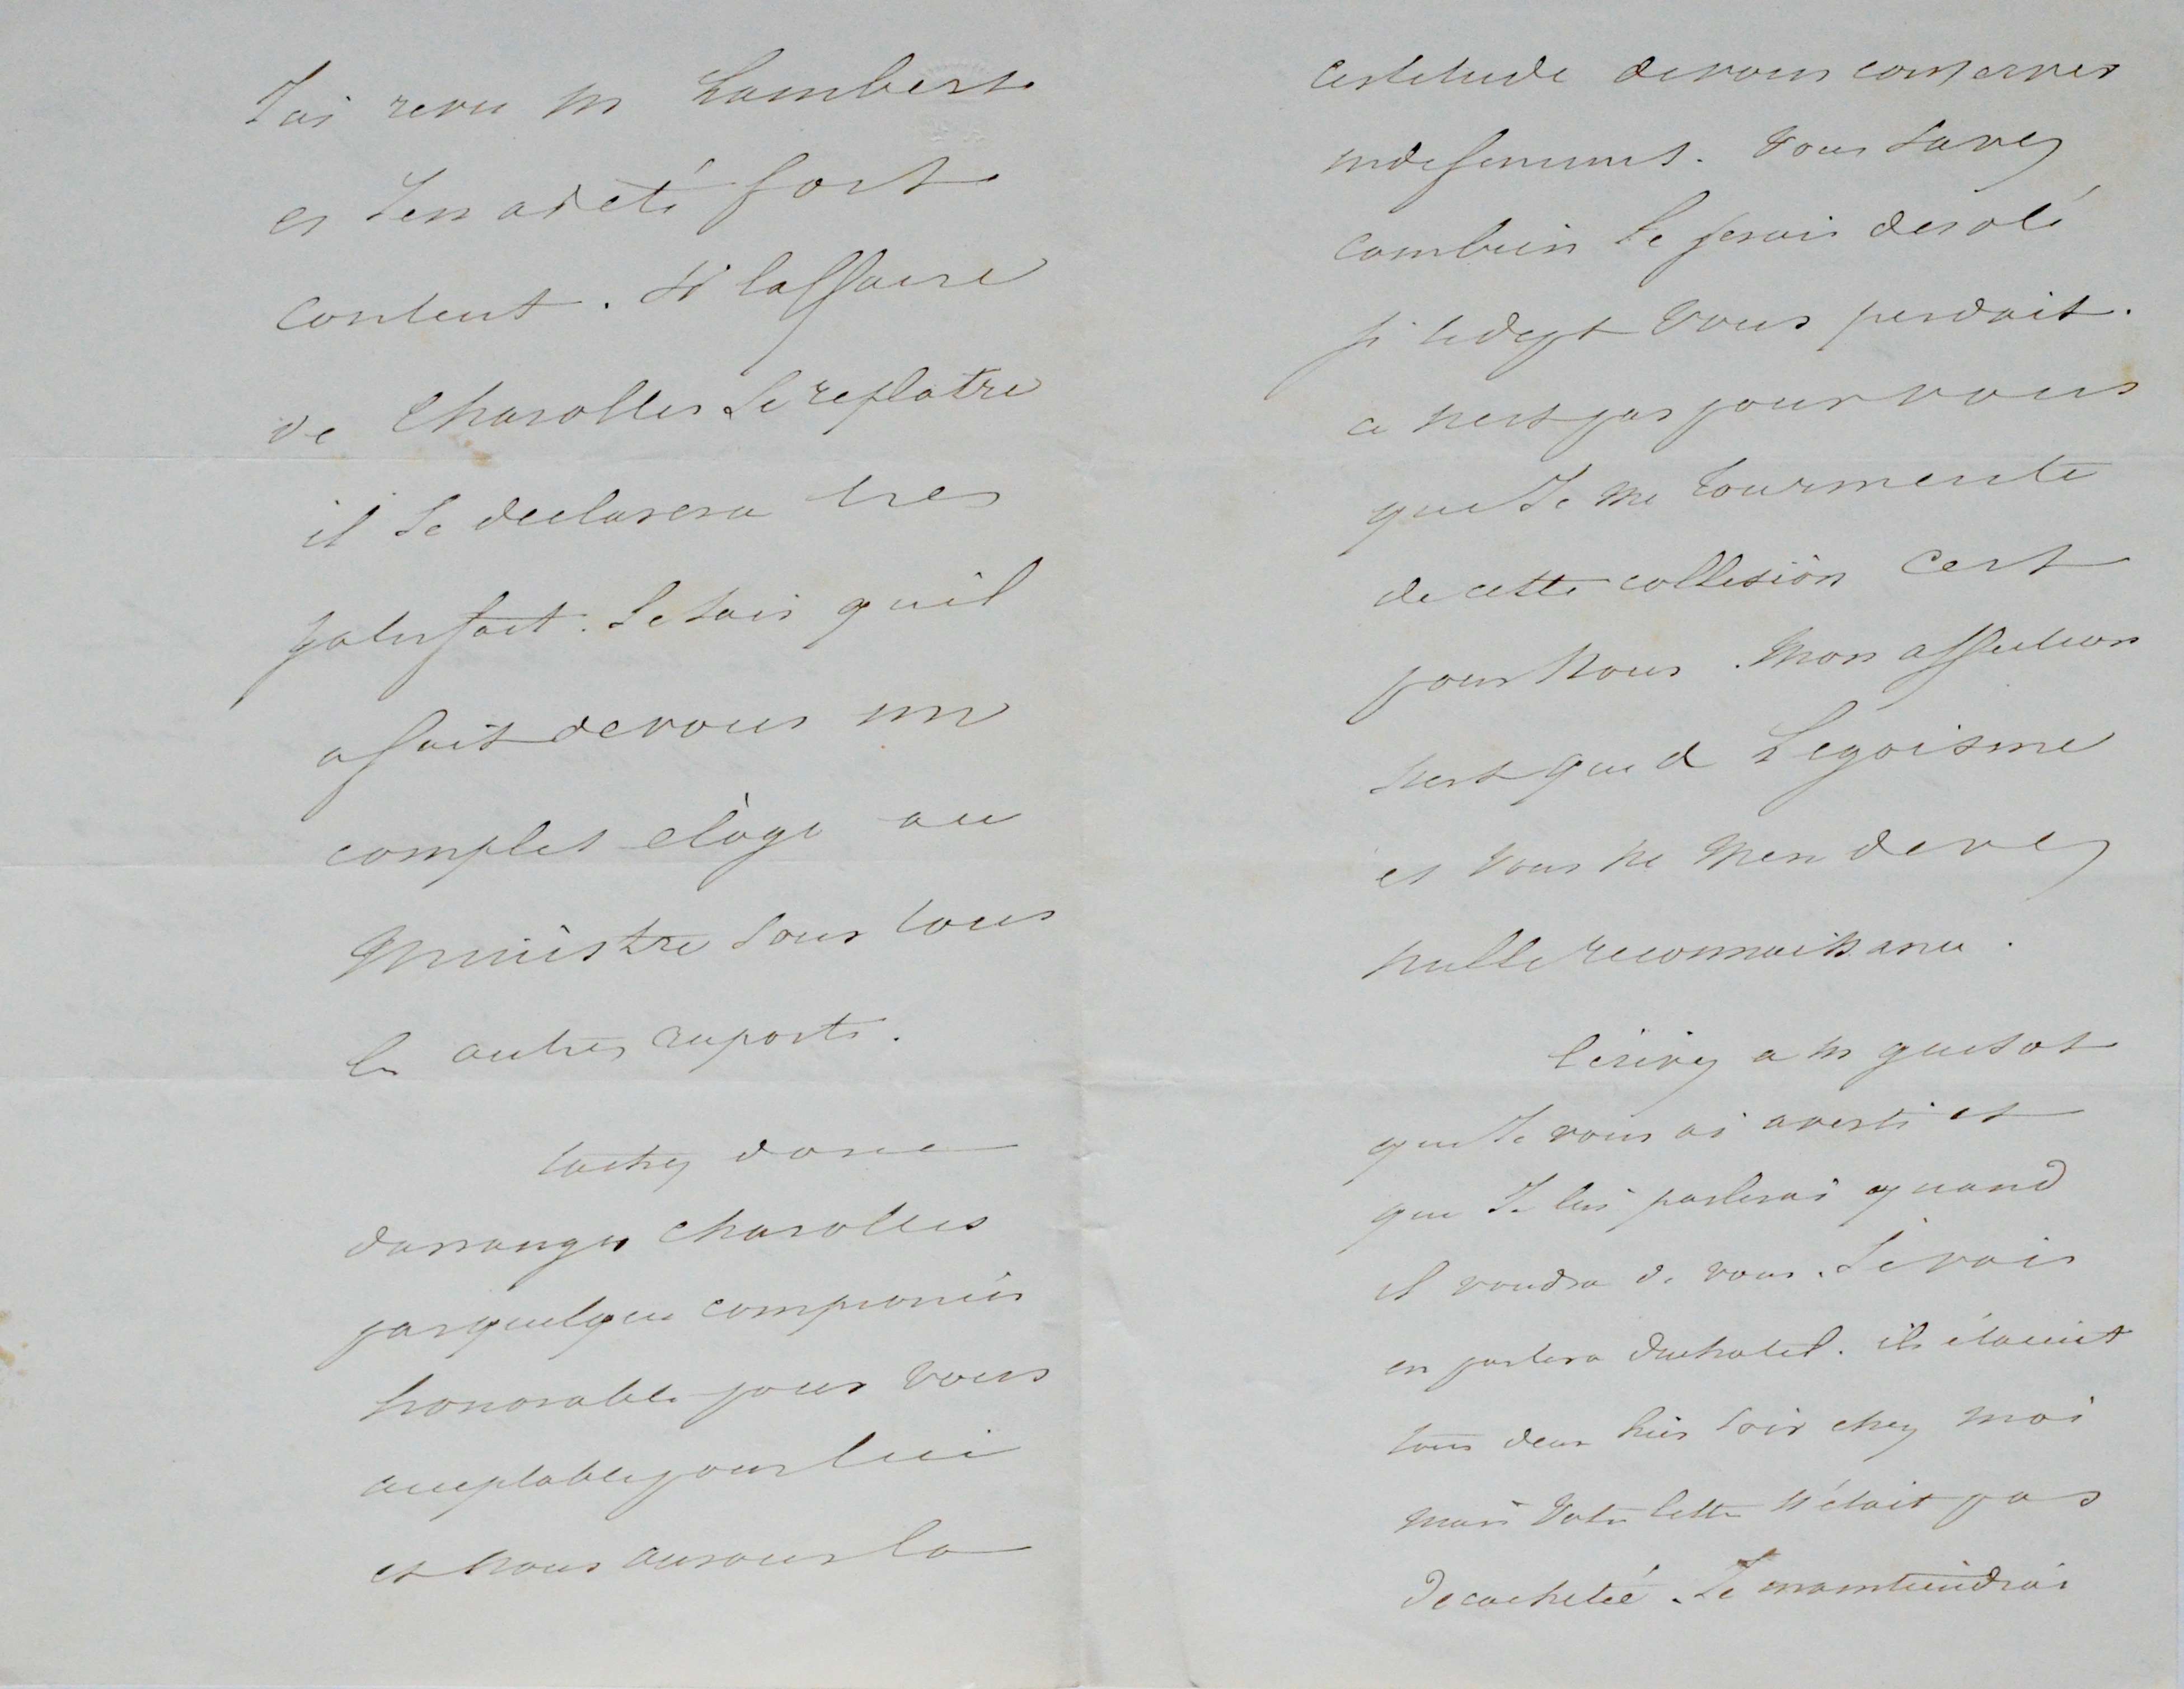 J'ai revu Mr Lambert
et j'en ai été fort
content. Si laffaire
de Charolles se replatre
il se declarera tres
satisfait. Je sais quil
a fait de vous un
complet elòge au
Ministre sous tous
les autres raports.
tachez donc
darranger Charolles
par quelque compromis
honorable pour vous
acceptable pour lui
et nous aurons la
certitude de vous conserver
indefiniment. Vous savez
combien Je serais desolé
si le dept vous perdait.
ce nest pas pour vous
que Je me tourmente
de cette collision Cest
pour nous. Mon affection
nest que de Legoisme
et vous ne men devez
nulle reconnaissance.
Ecrivez a Mr guisot
que Je vous ai averti et
que Je lui parlerai quand
il voudra de vous. Je vais
en parler a duchatel. ils étaient
tous deux hier soir chez moi
mais Votre lettre n'était pas
Decachetée. Je maintiendrai